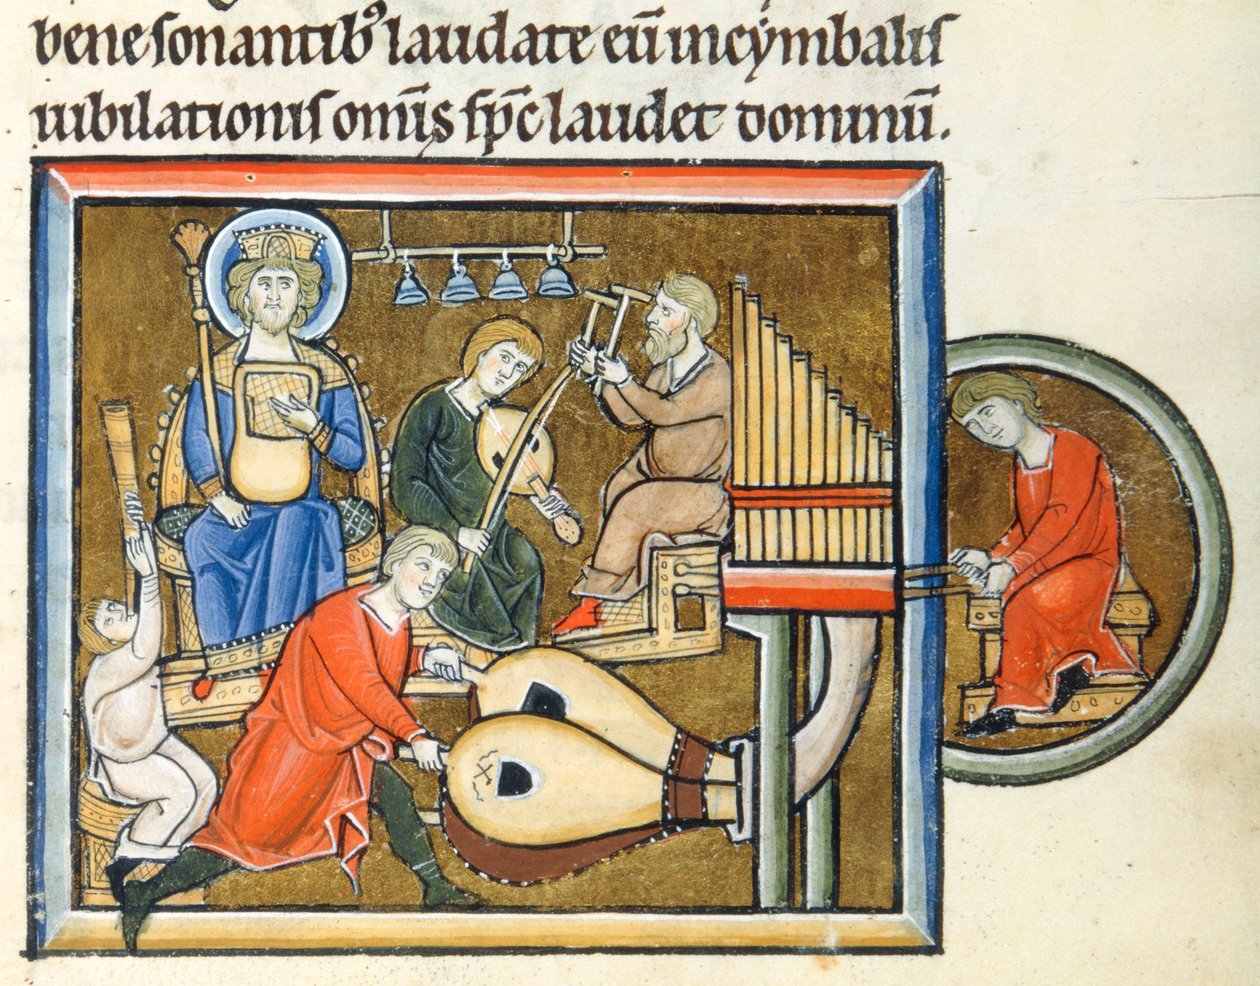 bene sonantib⁹ laudate eū in cẏmbalis
iubilationis om̄is sp̄c laudet dominū.